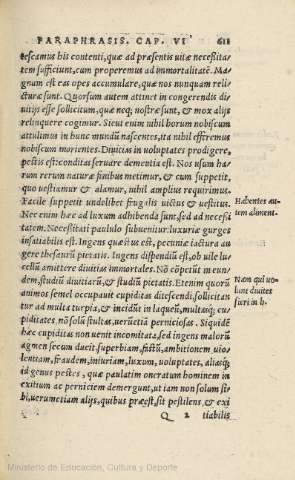 PARAPHRASIS. CAP. VI 611
tescamus his contenti, quæ ad præsentis uitæ necessita-
tem sufficiunt, cam properemus ad immortalitatē. Ma-
gnum est eas opes accumulare, quæ nos nunquam reli-
cturæ sunt. Quorsum autem attinet in congerendis di-
uitijs esse sollicitum, quæ neq; nostræ sunt, & mox alijs
relinquere cogimur. Sicut enim nihil horum nobiscum
attulimus in hunc mundū nascentes, ita nihil efferemus
nobiscum morientes. Diuitias in uoluptates prodigere,
pestis est: conditas seruare dementia est. Nos usum ha-
rum rerum naturæ finibus metimur, & cum suppetit,
quo uestiamur & alamur, nihil amplius requirimus.
Facile suppetit undelibet frugalis uictus & uestitus.
Nec enim hæc ad luxum adhibenda sunt, sed ad necessi
tatem. Necessitati paululo subuenitur: luxuriæ gurges
insatiabilis est. Ingens quæstus est, pecuniæ iactura au-
gere thesauru pietatis. Ingens dispendiū est, ob uile lu-
cellū amittere diuitias immortales. Nō cōpetit in eun-
dem, studiū diuitiarū, & studiū pietatis. Etenim quorū
animos semel occupauit cupiditas ditescendi, sollicitan
tur ad multa turpia, & incidūt in laqueū, multasq; cu-
piditates, nō solū stultas, uerūetiā perniciosas. Siquidē
hæc cupiditas non uenit incomitata, sed ingens malorū
agmen secum ducit superbiam, fastū, ambitionem, uio-
lentiam, fraudem, iniuriam, luxum, uoluptates, aliasq;
id genus pestes, quæ paulatim oneratum hominem in
exitium ac perniciem demergunt, ut iam non solum si-
bi, uerumetiam alijs, quibus præest, sit pestilens, & exi
Q 2 tiabilis
Habentes au-
tem aliment.
Nam qui uo-
lunt diuites
fieri in h.
Ministerio de Educación, Cultura y Deporte